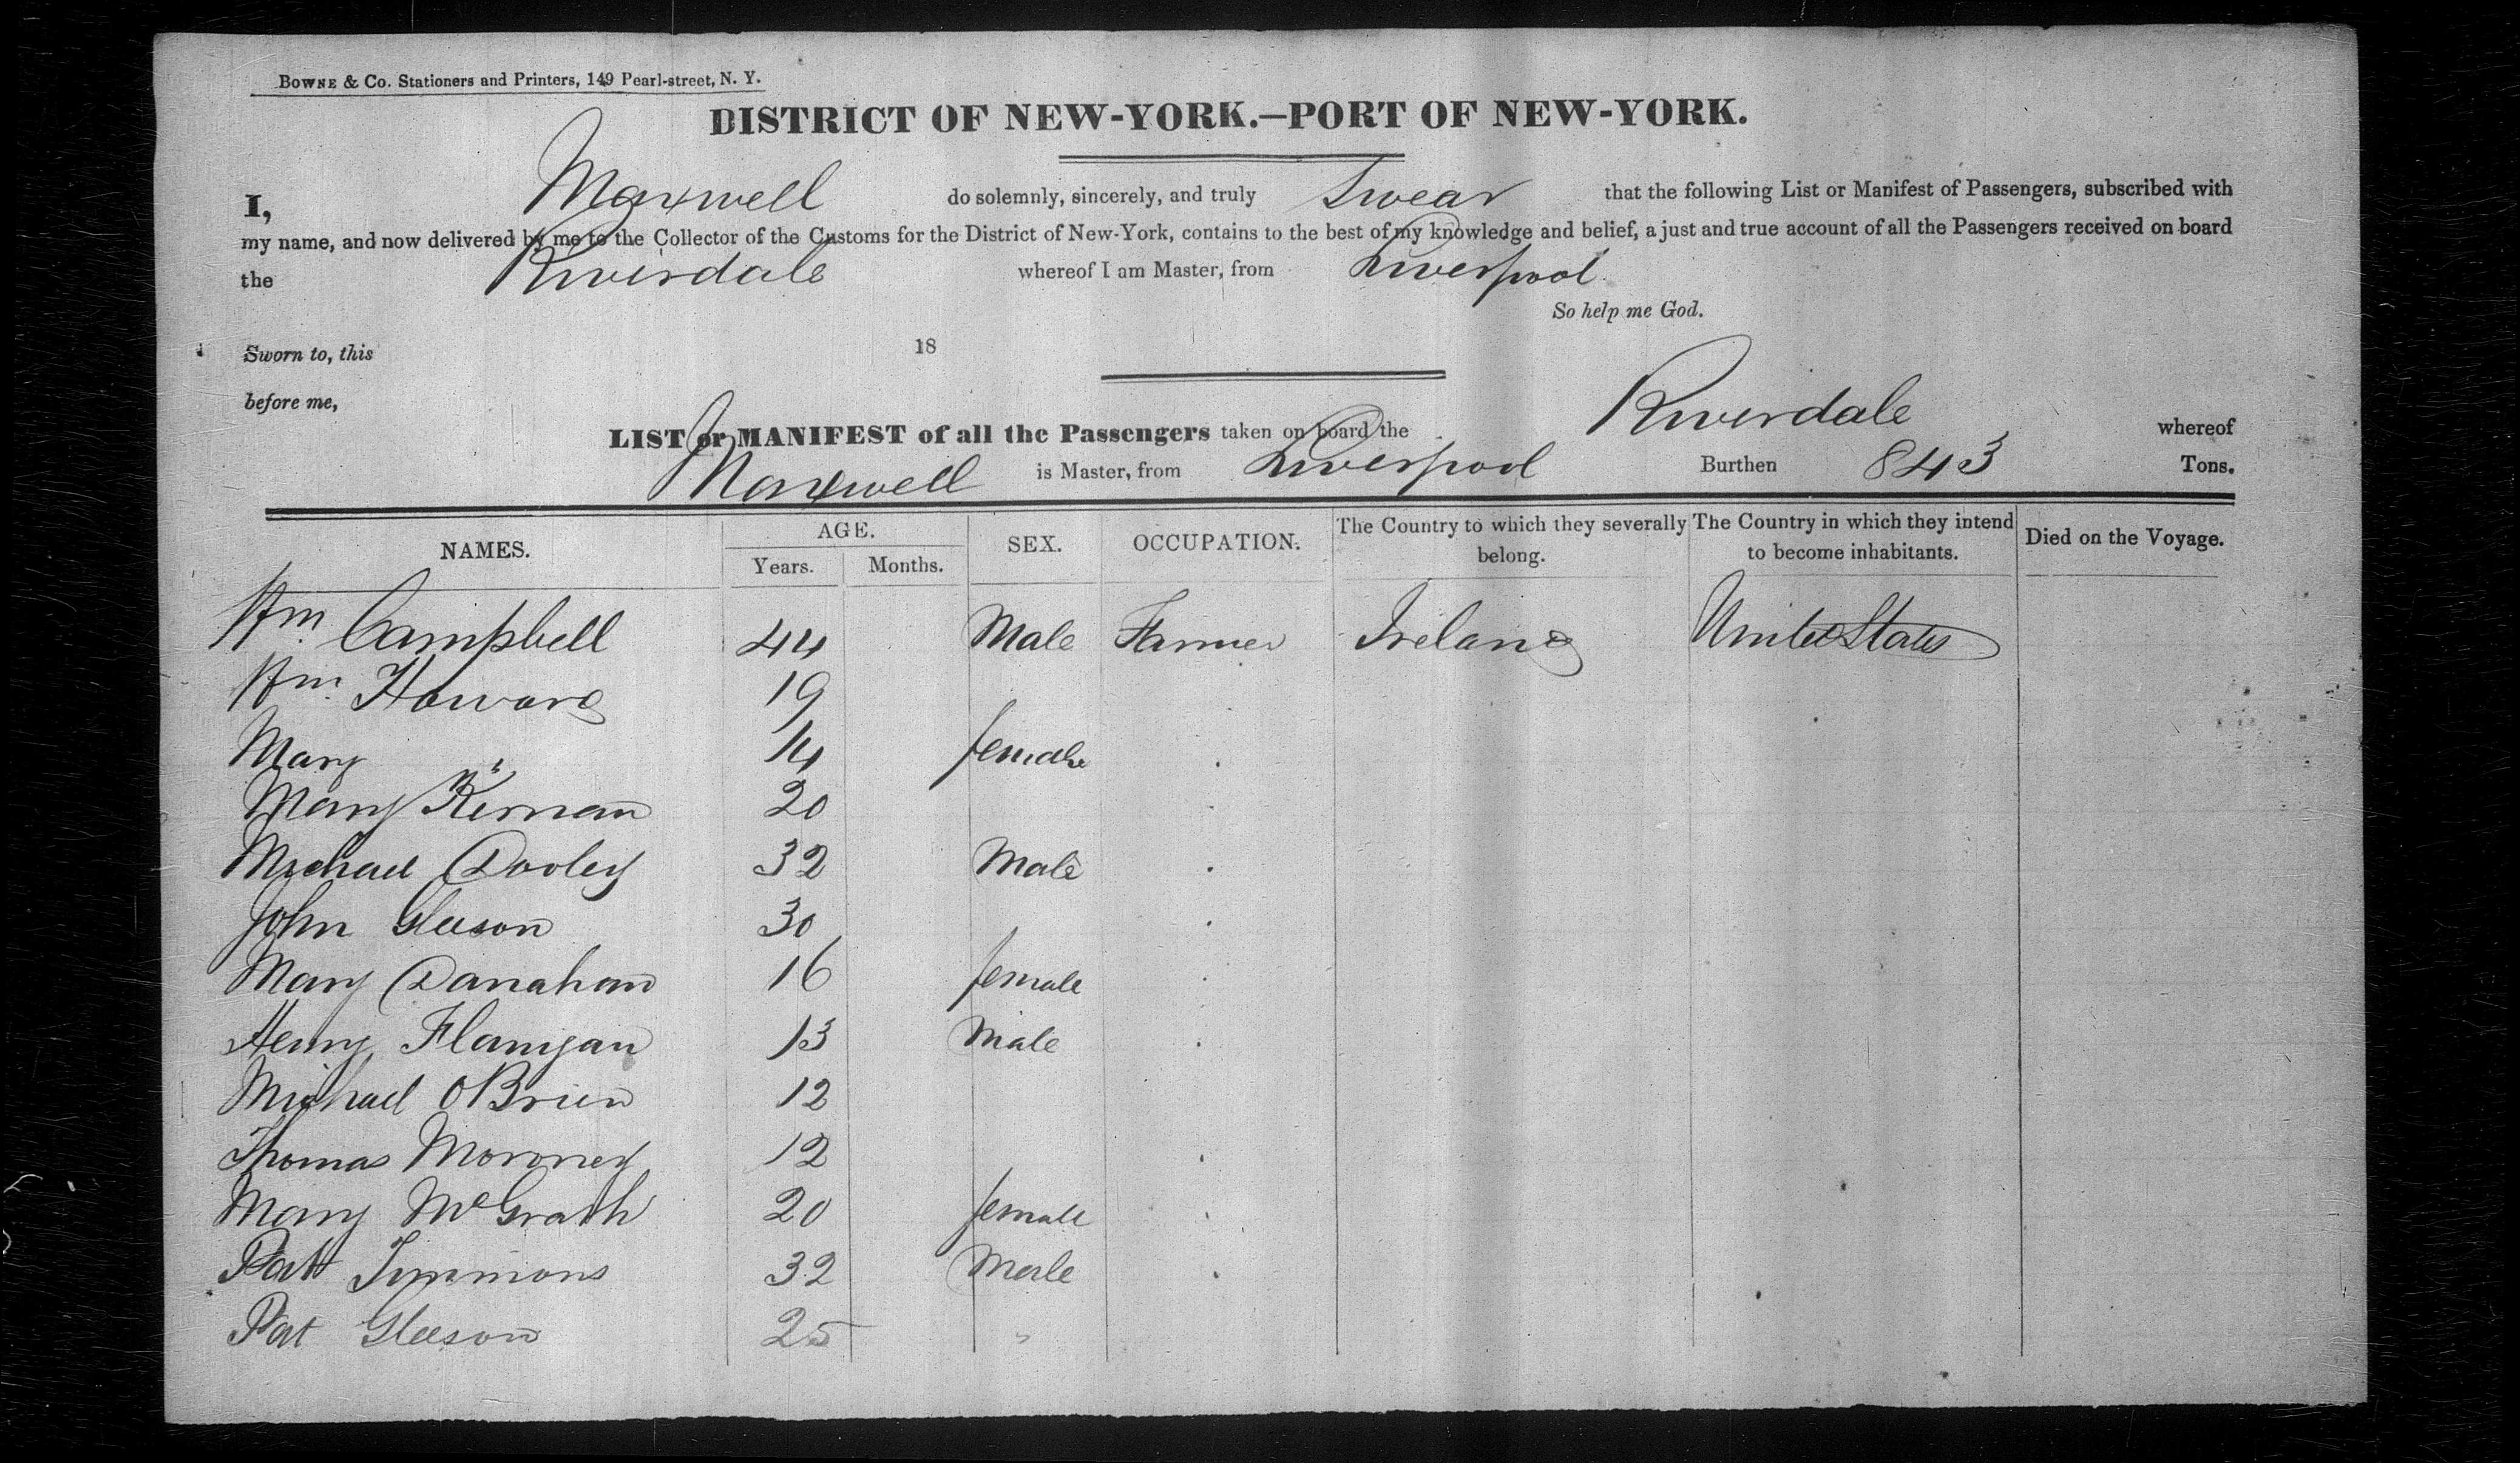 BOWNE & CO. Stationers and Printers, 149 Pearl-street, N. Y.
DISTRICT OF NEW-YORK.—PORT OF NEW-YORK.
I, Maxwell do solemnly, sincerely, and truly Swear that the following List or Manifest of Passengers, subscribed with
my name, and now delivered by me to the Collector of the Customs for the District of New-York, contains to the best of my knowledge and belief, a just and true account of all the Passengers received on board
the Riverdale whereof I am Master, from Liverpool
So help me God.
Sworn to, this 18
before me,
LIST or MANIFEST of all the Passengers taken on board the Riverdale whereof
Maxwell is Master, from Liverpool Burthen 843 Tons.
NAMES. AGE. SEX. OCCUPATION. The Country to which they severally belong. The Country in which they intend to become inhabitants. Died on the Voyage.
Years. Months.
Wm Campbell 44 Male Farmer Ireland United States
Wm Howard 19
Mary " 14 female
Mary Kernan 20
Michael Dooley 32 Male
John Gleeson 30
Mary Danahan 16 female
Henry Flanigan 13 Male
Michael OBrien 12
Thomas Moroney 12
Mary McGrath 20 female
Patt Timmons 32 Male
Pat Gleeson 25 "